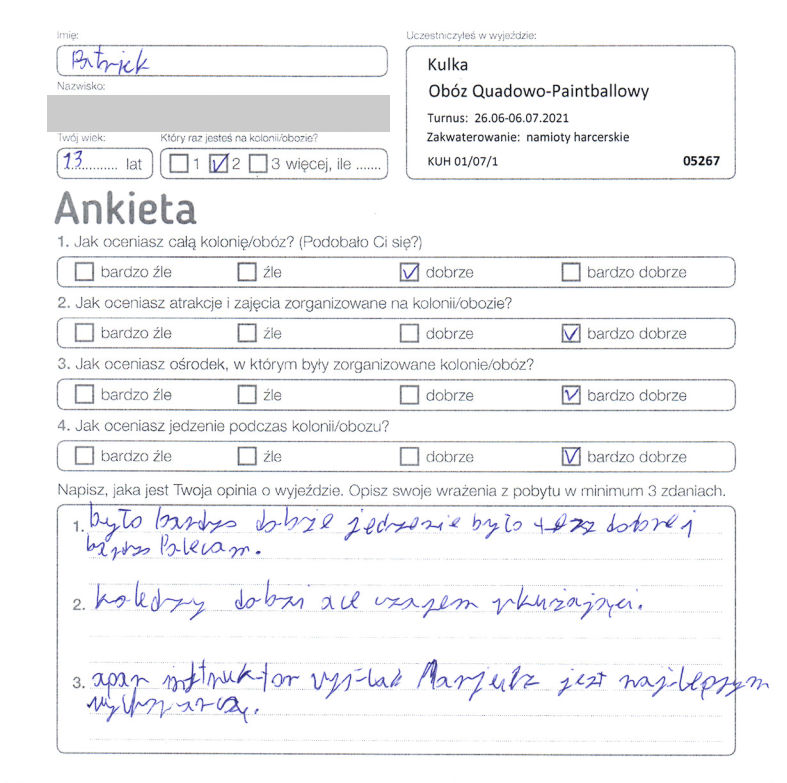 Imię:
Patryck
Uczestniczyłeś w wyjeździe:
Kulka
Obóz Quadowo-Paintballowy
Turnus: 26.06-06.07.2021
Zakwaterowanie: namioty harcerskie
KUH 01/07/1 05267
Nazwisko:
Twój wiek:
13 lat
Który raz jesteś na kolonii/obozie?
1 2 3 więcej, ile .......
Ankieta
1. Jak oceniasz całą kolonię/obóz? (Podobało Ci się?)
bardzo źle źle dobrze bardzo dobrze
2. Jak oceniasz atrakcje i zajęcia zorganizowane na kolonii/obozie?
bardzo źle źle dobrze bardzo dobrze
3. Jak oceniasz ośrodek, w którym były zorganizowane kolonie/obóz?
bardzo źle źle dobrze bardzo dobrze
4. Jak oceniasz jedzenie podczas kolonii/obozu?
bardzo źle źle dobrze bardzo dobrze
Napisz, jaka jest Twoja opinia o wyjeździe. Opisz swoje wrażenia z pobytu w minimum 3 zdaniach.
1. było bardzo dobrze jedzenie było też dobre i
bardzo Polecam.
2. koledzy dobzi ale czasem
3. apan jest najlepszym